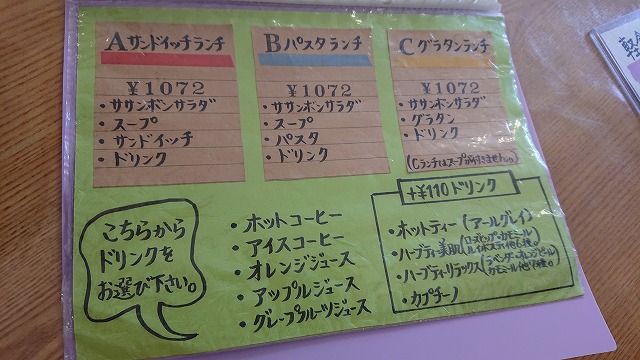 Aサンドイッチランチ
¥1072
・ササンボンサラダ
・スープ
・サンドイッチ
・ドリンク
Bパスタランチ
¥1072
・ササンボンサラダ
・スープ
・パスタ
・ドリンク
Cグラタンランチ
¥1072
・ササンボンサラダ
・グラタン
・ドリンク
(Cランチはスープが付きません。)
こちらから
ドリンクを
お選び下さい。
・ホットコーヒー
・アイスコーヒー
・オレンジジュース
・アップルジュース
・グレープフルーツジュース
+¥110ドリンク
・ホットティー(アールグレイ)
・ハーブティ美肌(ローズヒップ・カモミール ルイボスティ他6種。)
・ハーブティリラックス(ラベンダー・オレンジピール カモミール他
・カプチーノ
軽